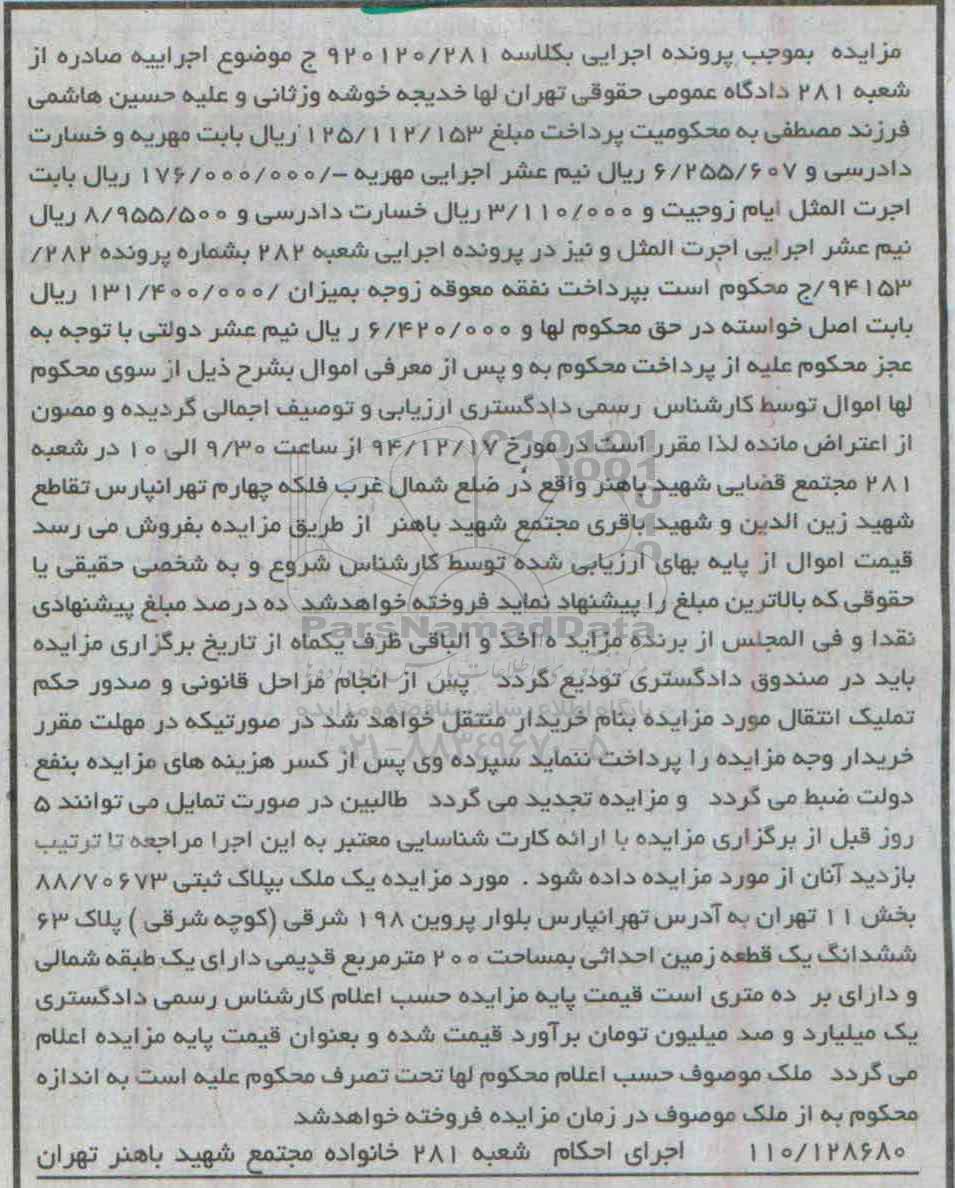 مزایده بموجب پرونده اجرایی بکلاسه ۹۲۰۱۲۰/۲۸۱ ج موضوع اجراییه صادره از
شعبه ۲۸۱ دادگاه عمومی حقوقی تهران لها خدیجه خوشه وزثانی و علیه حسین هاشمی
فرزند مصطفی به محکومیت پرداخت مبلغ ۱۲۵/۱۱۲/۱۵۳ ریال بابت مهریه و خسارت
دادرسی و ۶/۲۵۵/۶۰۷ ریال نیم عشر اجرایی مهریه -/۱۷۶/۰۰۰/۰۰۰ ریال بابت
اجرت المثل ایام زوجیت و ۳/۱۱۰/۰۰۰ ریال خسارت دادرسی و ۸/۹۵۵/۵۰۰ ریال
نیم عشر اجرایی اجرت المثل و نیز در پرونده اجرایی شعبه ۲۸۲ بشماره پرونده ۲۸۲/
۹۴۱۵۳/ج محکوم است بپرداخت نفقه معوقه زوجه بمیزان /۱۳۱/۴۰۰/۰۰۰ ریال
بابت اصل خواسته در حق محکوم لها و ۶/۴۲۰/۰۰۰ ر یال نیم عشر دولتی با توجه به
عجز محکوم علیه از پرداخت محکوم به و پس از معرفی اموال بشرح ذیل از سوی محکوم
لها اموال توسط کارشناس رسمی دادگستری ارزیابی و توصیف اجمالی گردیده و مصون
از اعتراض مانده لذا مقرر است در مورخ ۹۴/۱۲/۱۷ از ساعت ۹/۳۰ الی ۱۰ در شعبه
۲۸۱ مجتمع قضایی شهید باهنر واقع در ضلع شمال غرب فلکه چهارم تهرانپارس تقاطع
شهید زین الدین و شهید باقری مجتمع شهید باهنر از طریق مزایده بفروش می رسد
قیمت اموال از پایه بهای ارزیابی شده توسط کارشناس شروع و به شخصی حقیقی یا
حقوقی که بالاترین مبلغ را پیشنهاد نماید فروخته خواهدشد ده درصد مبلغ پیشنهادی
ParsNamadData
نقدا و فی المجلس از برنده مزاید ه اخذ و الباقی ظرف یکماه از تاریخ برگزاری مزایده
باید در صندوق دادگستری تودیع گردد پس از انجام مراحل قانونی و صدور حکم
پایگاه اطلاع رسانی مناقصه و مزایده
تملیک انتقال مورد مزایده بنام خریدار منتقل خواهد شد در صورتیکه در مهلت مقرر
۰۲۱-۸۸۳۴۹۶۷۰-۵
خریدار وجه مزایده را پرداخت ننماید سپرده وی پس از کسر هزینه های مزایده بنفع
دولت ضبط می گردد و مزایده تجدید می گردد طالبین در صورت تمایل می توانند ۵
روز قبل از برگزاری مزایده با ارائه کارت شناسایی معتبر به این اجرا مراجعه تا ترتیب
بازدید آنان از مورد مزایده داده شود . مورد مزایده یک ملک بپلاک ثبتی ۸۸/۷۰۶۷۳
بخش ۱۱ تهران به آدرس تهرانپارس بلوار پروین ۱۹۸ شرقی (کوچه شرقی ) پلاک ۶۳
ششدانگ یک قطعه زمین احداثی بمساحت ۲۰۰ مترمربع قدیمی دارای یک طبقه شمالی
و دارای بر ده متری است قیمت پایه مزایده حسب اعلام کارشناس رسمی دادگستری
یک میلیارد و صد میلیون تومان برآورد قیمت شده و بعنوان قیمت پایه مزایده اعلام
می گردد ملک موصوف حسب اعلام محکوم لها تحت تصرف محکوم علیه است به اندازه
محکوم به از ملک موصوف در زمان مزایده فروخته خواهدشد
۱۱۰/۱۲۸۶۸۰ اجرای احکام شعبه ۲۸۱ خانواده مجتمع شهید باهنر تهران